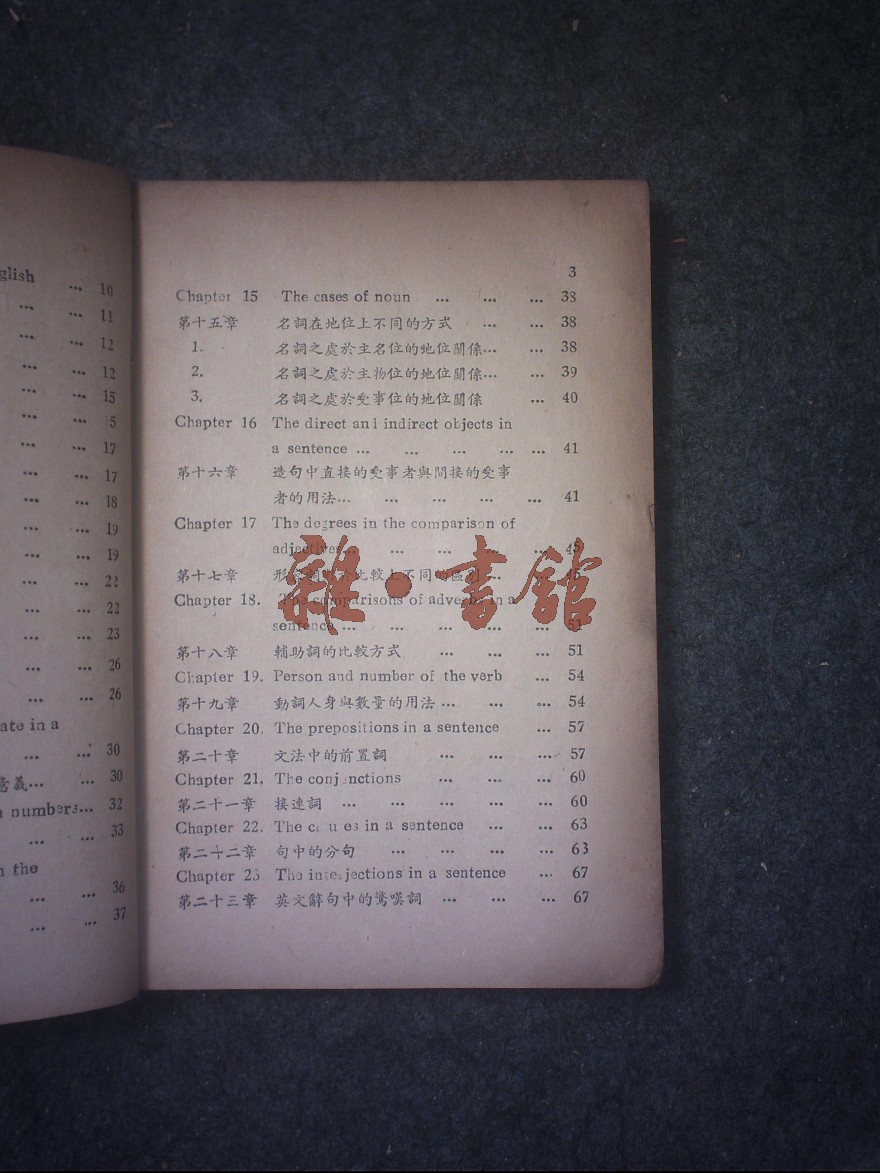 glish ... 10
... ... 11
... ... 12
... ... 12
... ... 15
... ...
... ... 17
... ... 17
... ... 18
... ... 19
... ... 19
... ... 22
... ... 22
... ... 23
... ... 26
... ... 26
ate in a
... ... 30
意義... ... 30
numbers... 32
... ... 33
the
... ... 36
... ... 37
3
Chapter 15 The cases of noun ... ... ... 38
第十五章 名詞在地位上不同的方式 ... ... 38
1. 名詞之處於主名位的地位關係... ... 38
2. 名詞之處於主物位的地位關係... ... 39
3. 名詞之處於受事位的地位關係 ... 40
Chapter 16 The direct and indirect objects in
a sentence ... ... ... ... ... 41
第十六章 造句中直接的受事者與間接的受事
者的用法... ... ... ... ... 41
Chapter 17 The degrees in the comparison of
adjectives... ... ... ... ... 45
第十七章 形 比較上不同 區別 ... ...
Chapter 18. The comparisons of adverbs in a
sentence ... ... ... ... ... 51
第十八章 輔助詞的比較方式 ... ... ... 51
Chapter 19. Person and number of the verb ... 54
第十九章 動詞人身與數量的用法 ... ... ... 54
Chapter 20. The prepositions in a sentence ... 57
第二十章 文法中的前置詞 ... ... ... 57
Chapter 21. The conjunctions ... ... ... 60
第二十一章 接連詞 ... ... ... ... ... 60
Chapter 22. The in a sentence ... ... 63
第二十二章 句中的分句 ... ... ... ... 63
Chapter 23 The interjections in a sentence ... 67
第二十三章 英文辭句中的驚嘆詞 ... ... ... 67
雜·書館